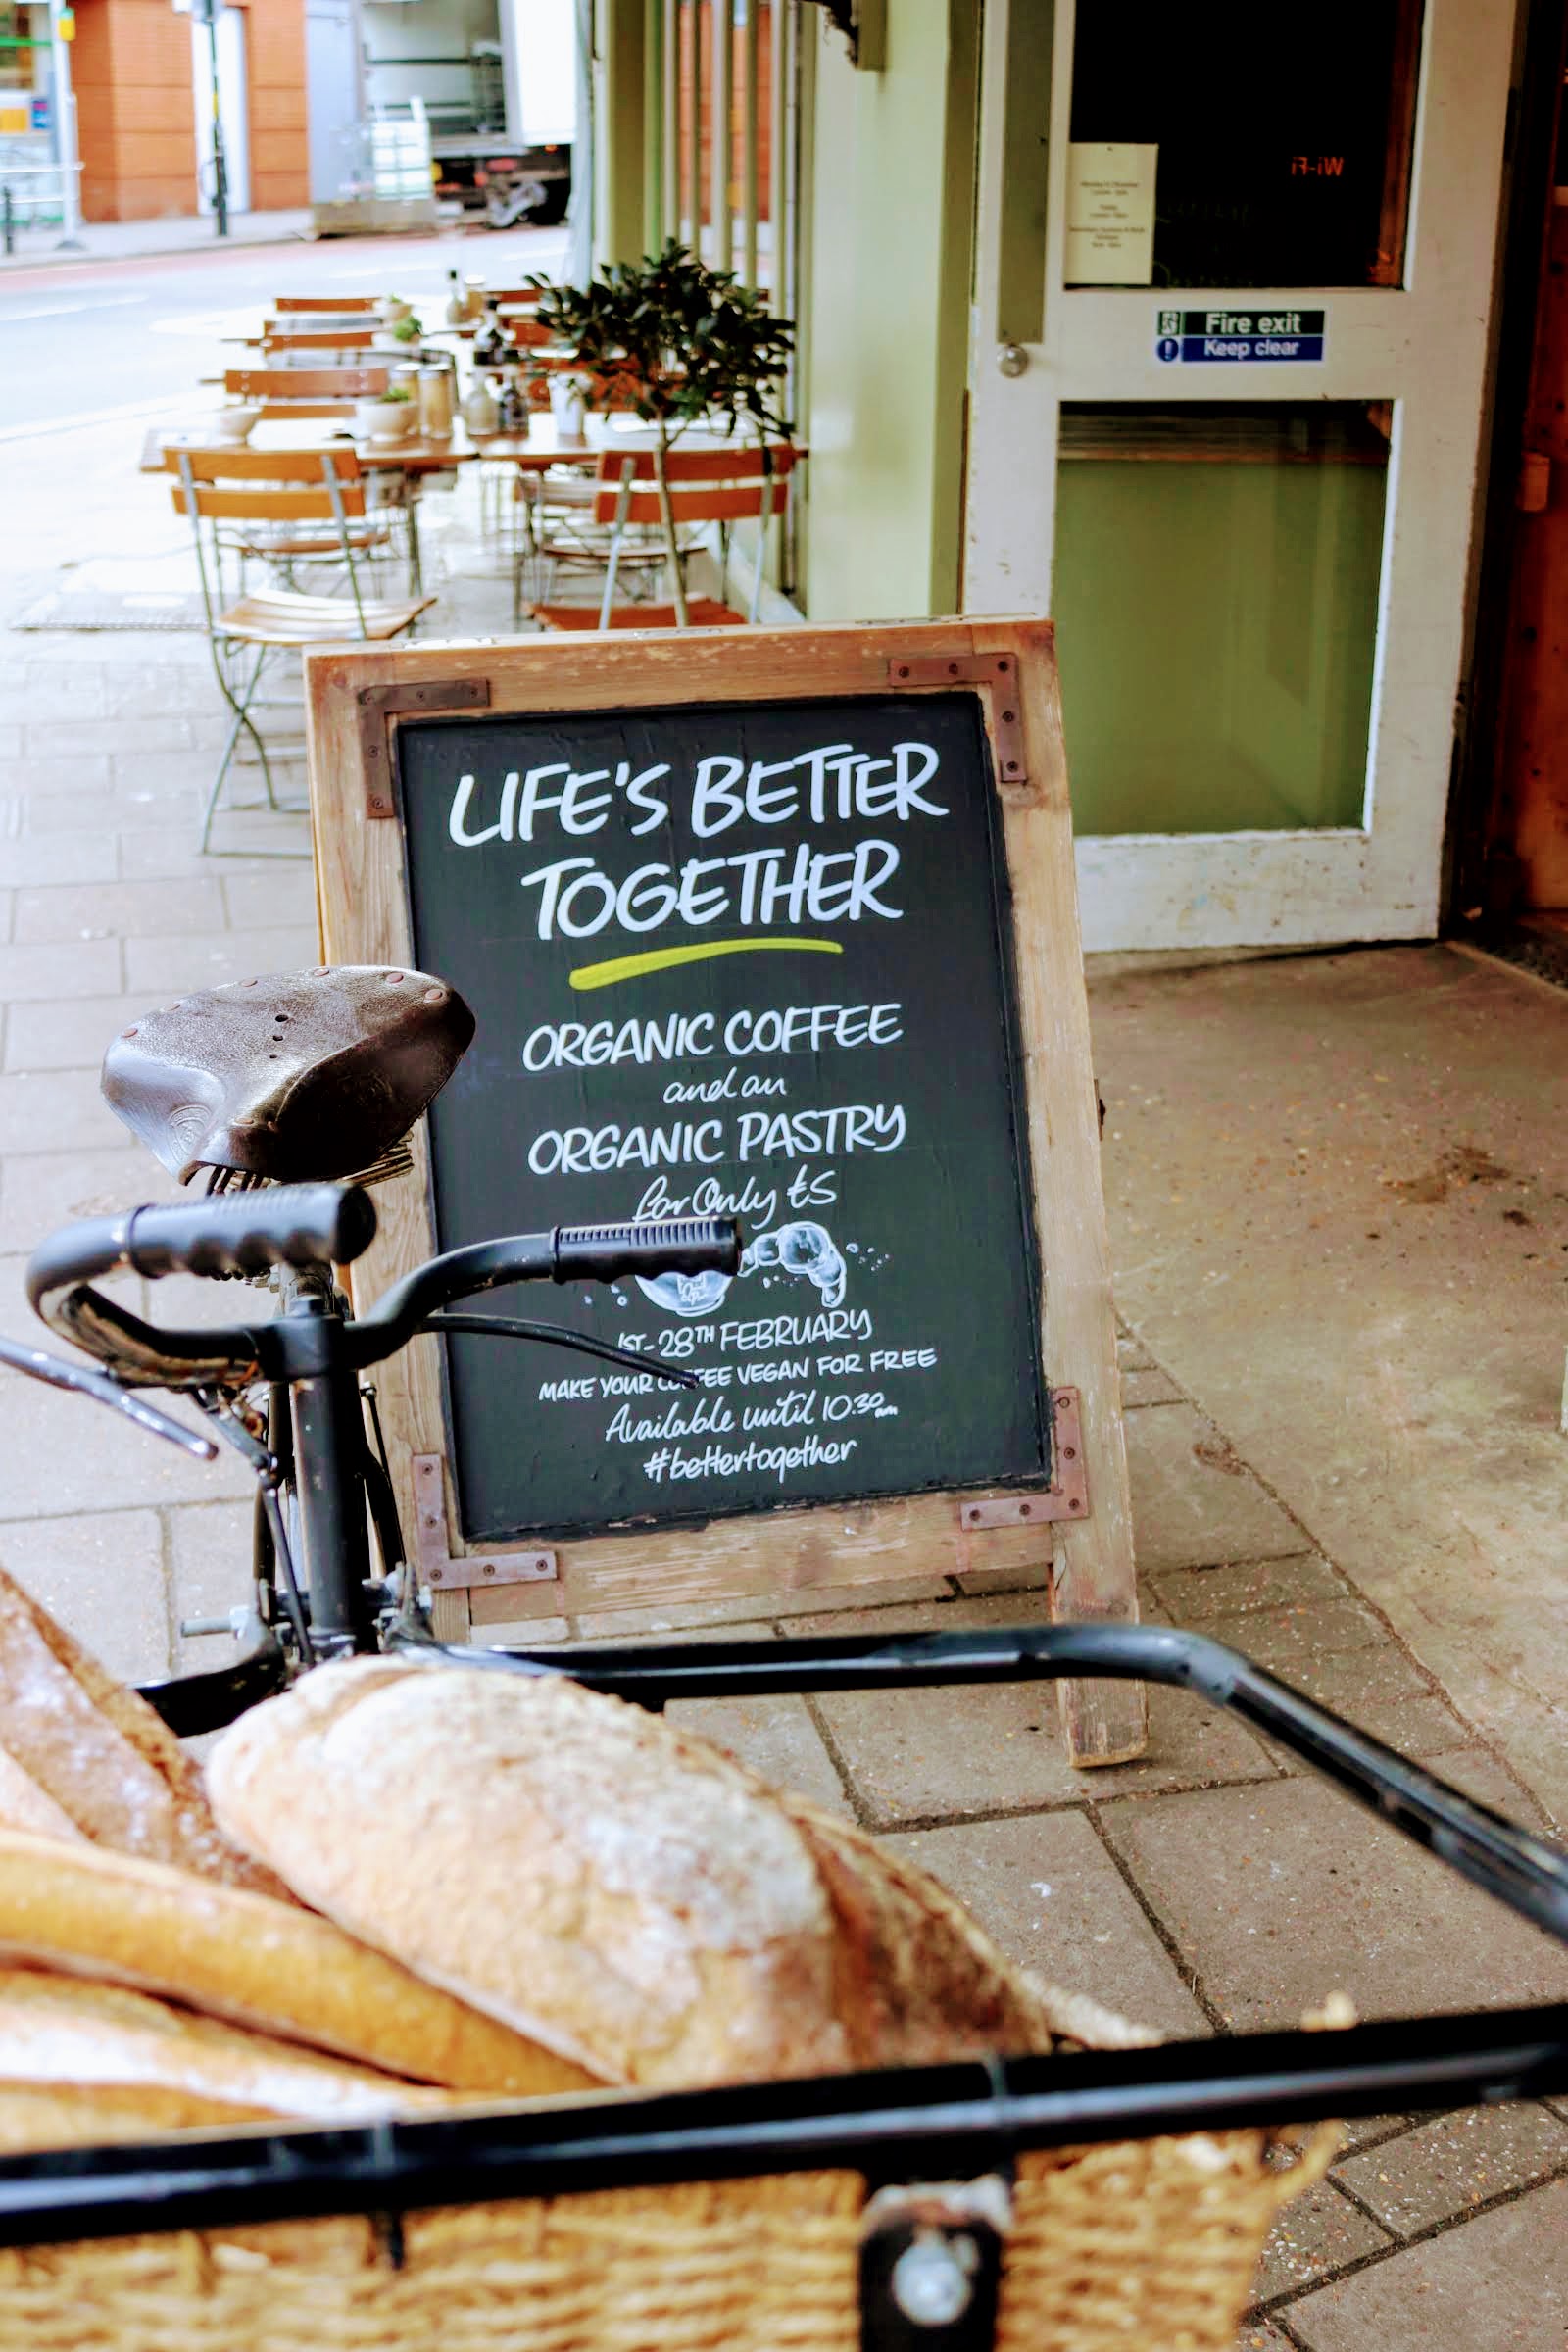 Wi-Fi
Fire exit
Keep clear
LIFE'S BETTER
TOGETHER
ORGANIC COFFEE
and an
ORGANIC PASTRY
for Only £5
1ST-28TH FEBRUARY
MAKE YOUR COFFEE VEGAN FOR FREE
Available until 10:30am
#bettertogether